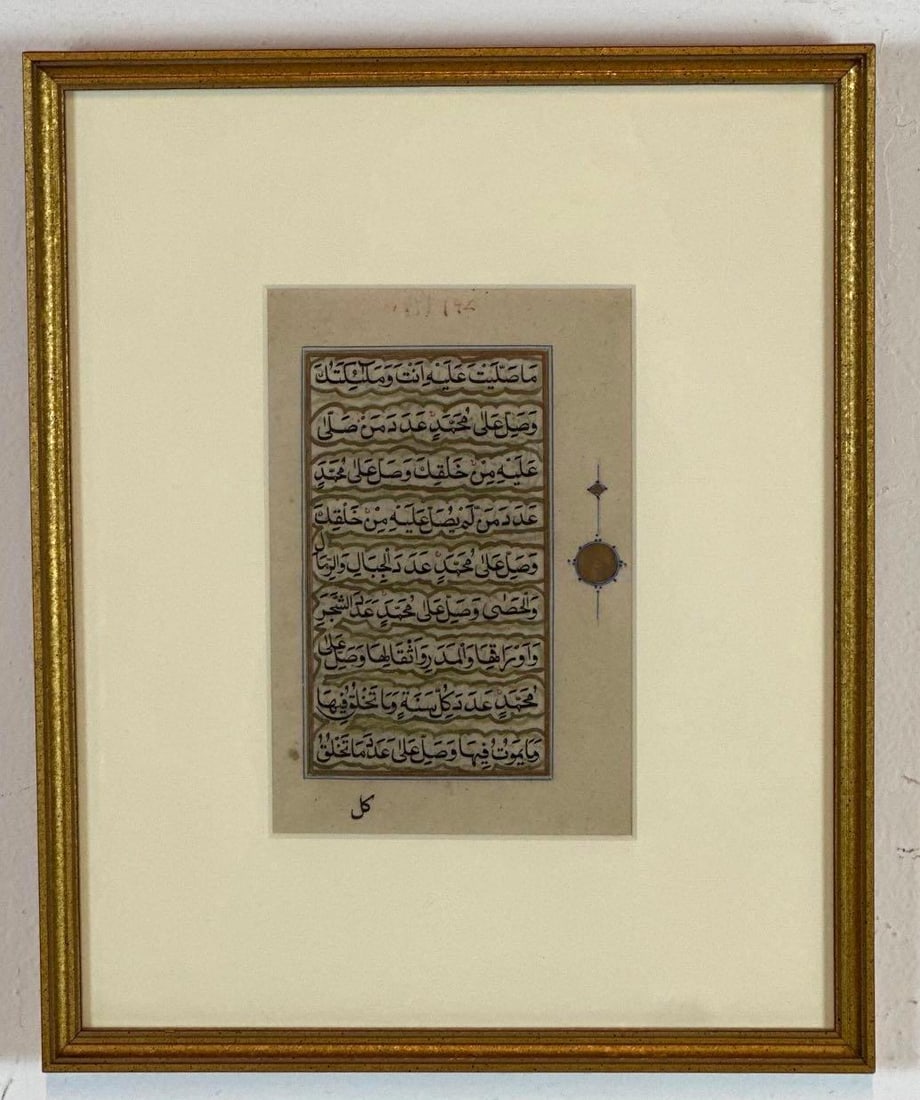 مَا صَلَّيْتَ عَلَيْهِ اَنْتَ وَمَلٰئِكَتُكَ
وَصَلِّ عَلٰى مُحَمَّدٍ عَدَدَ مَنْ صَلّٰى
عَلَيْهِ مِنْ خَلْقِكَ وَصَلِّ عَلٰى مُحَمَّدٍ
عَدَدَ مَنْ لَمْ يُصَلِّ عَلَيْهِ مِنْ خَلْقِكَ
وَصَلِّ عَلٰى مُحَمَّدٍ عَدَدَ الْجِبَالِ وَالرِّمَالِ
وَالْحَصٰى وَصَلِّ عَلٰى مُحَمَّدٍ عَدَدَ الشَّجَرِ
وَاَوْرَاقِهَا وَالْمَدَرِ وَاَثْقَالِهَا وَصَلِّ عَلٰى
مُحَمَّدٍ عَدَدَ كُلِّ سَنَةٍ وَمَا تَخْلُقُ فِيْهَا
وَمَا يَمُوْتُ فِيْهَا وَصَلِّ عَلٰى عَدَدَ مَا تَخْلُقُ
كل